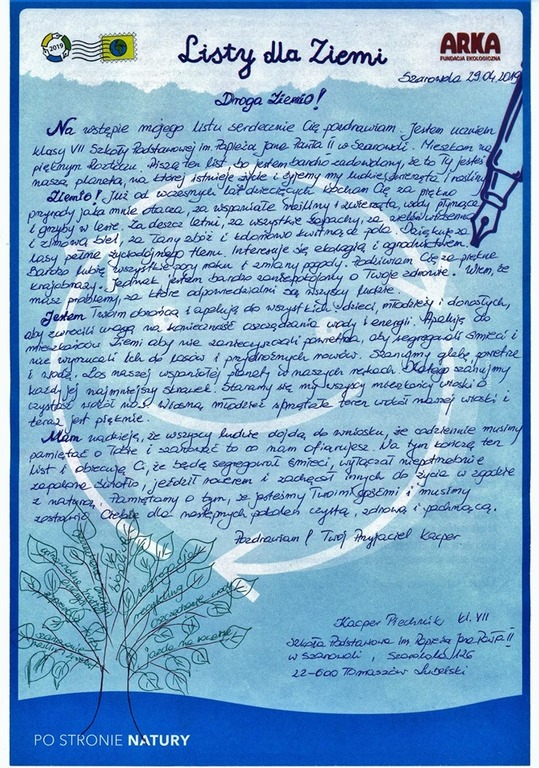 2019
Listy dla Ziemi
ARKA
FUNDACJA EKOLOGICZNA
Szarowola 29.04.2019
Droga Ziemio!
Na wstępie mojego listu serdecznie Cię pozdrawiam. Jestem uczniem
klasy VII Szkoły Podstawowej im. Papieża Jana Pawła II w Szarowoli. Mieszkam na
pięknym Roztoczu. Piszę ten list bo jestem bardzo zadowolony, że to Ty jesteś
naszą planetą, na której istnieje życie i żyjemy my ludzie, zwierzęta i rośliny
Ziemio! Już od wczesnych lat dziecięcych kocham Cię za piękno
przyrody jaka mnie otacza, za wspaniałe rośliny i zwierzęta, wody płynące
i grzyby w lesie. Za deszcz letni, za wszystkie zapachy, za
i zimową biel, za łany zbóż i kolorowo kwitnące pola. Dziękuję za
lasy pełne życiodajnego tlenu. Interesuję się ekologią i ogrodnictwem.
Bardzo lubię wszystkie pory roku i zmiany pogody. Podziwiam Cię za piękne
krajobrazy. Jednak jestem bardzo zaniepokojony o Twoje zdrowie. Wiem, że
masz problemy, za które odpowiedzialni są wszyscy ludzie.
Jestem Twoim obrońcą i apeluję do wszystkich dzieci, młodzieży i dorosłych,
aby zwrócili uwagę na konieczność oszczędzania wody i energii. Apeluję do
mieszkańców Ziemi aby nie zanieczyszczali powietrza, aby segregowali śmieci i
nie wyrzucali ich do lasów i przydrożnych rowów. Szanujmy glebę, powietrze
i wodę. Los naszej wspaniałej planety w naszych rękach. Dlatego szanujmy
każdy jej najmniejszy skrawek. Staramy się my wszyscy mieszkańcy wioski o
czystość wokół nas. Wiosną młodzież sprzątała teren wokół naszej wioski i
teraz jest pięknie.
Mam nadzieję, że wszyscy ludzie dojdą do wniosku, że codziennie musimy
pamiętać o Tobie i szanować to co nam ofiarujesz. Na tym kończę ten
list i obiecuję Ci, że będę segregował śmieci, wyłączał niepotrzebnie
zapalone światło, jeździł rowerem i zachęcał innych do życia w zgodzie
z naturą. Pamiętamy o tym, że jesteśmy Twoimi gośćmi i musimy
zostawić Ciebie dla następnych pokoleń czystą, zdrową i pachnącą.
Pozdrawiam! Twój Przyjaciel Kacper
segregacja
recykling
oszczędzanie wody
jazda na rowerze
Kacper Piechnik kl. VII
Szkoła Podstawowa im. Papieża Jana Pawła II
w Szarowoli, Szarowola 126
22-600 Tomaszów Lubelski
PO STRONIE NATURY